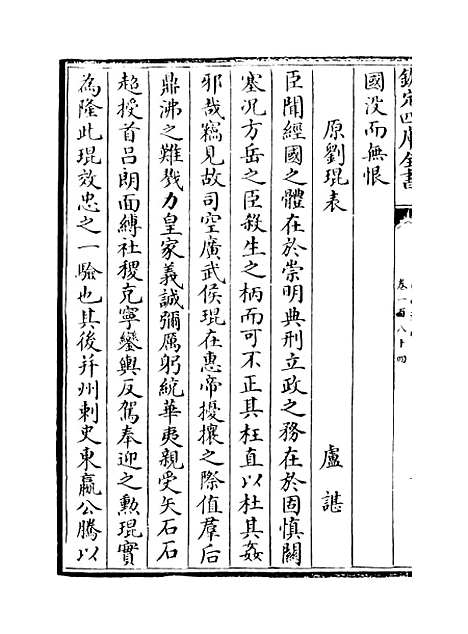 欽定四庫全書
卷一百八十四
國没而無恨
原劉琨表 盧諶
臣聞經國之體在於崇明典刑立政之務在於固慎關
塞况方岳之臣殺生之柄而可不正其枉直以杜其姦
邪哉竊見故司空廣武侯琨在惠帝擾攘之際值羣后
鼎沸之難戮力皇家義誠彌厲躬統華夷親受矢石石
超授首吕朗面縛社稷克寧鑾輿反駕奉迎之勲琨實
為隆此琨效忠之一驗也其後并州刺史東嬴公騰以